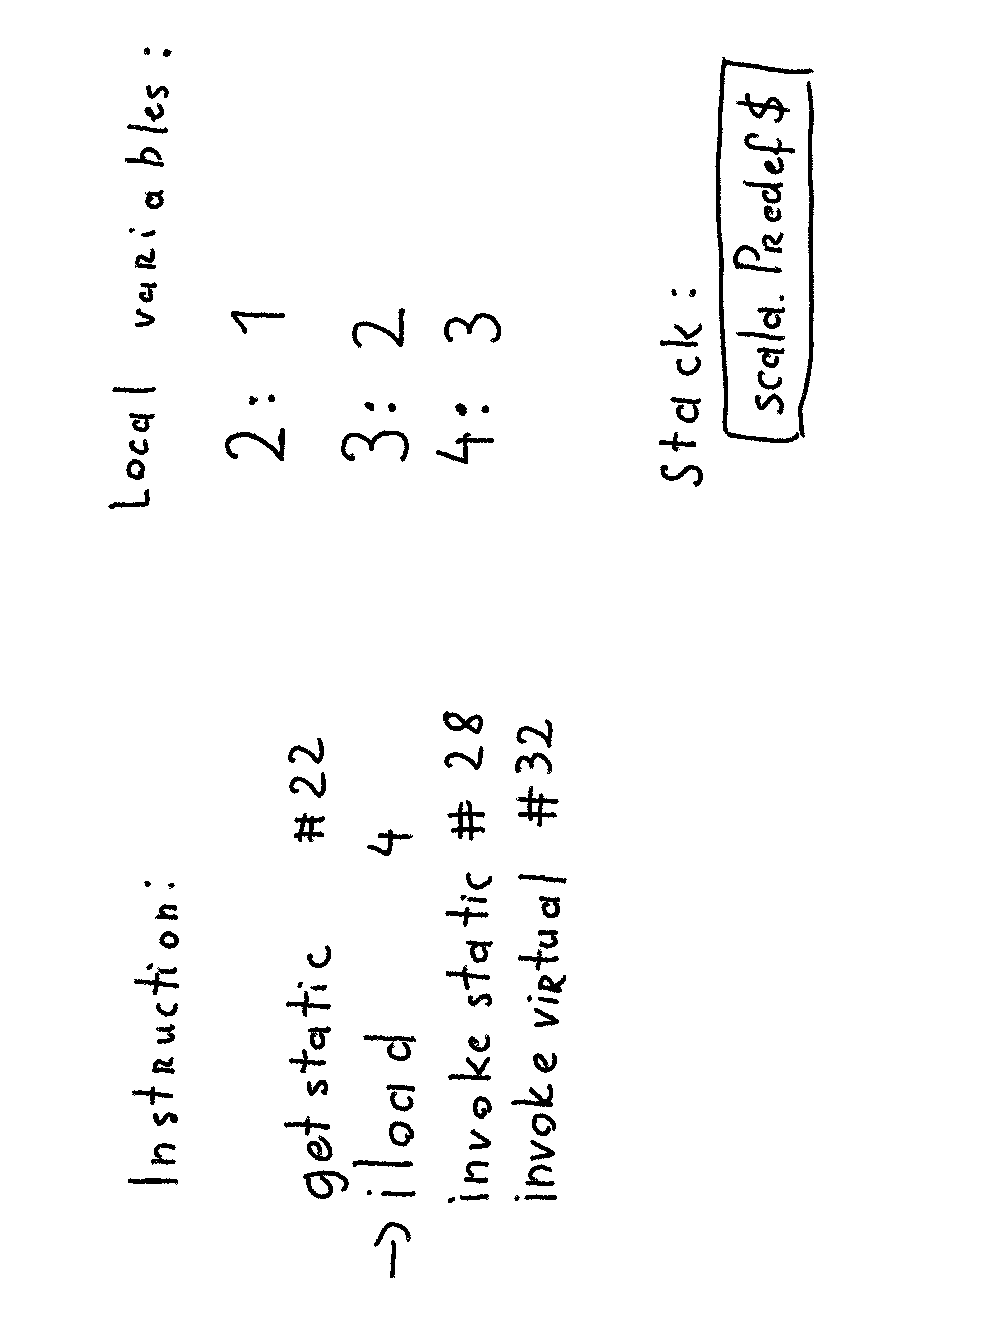 Instruction:
getstatic #22
→ iload 4
invokestatic #28
invokevirtual #32
Local variables:
2: 1
3: 2
4: 3
Stack:
scala.Predef$